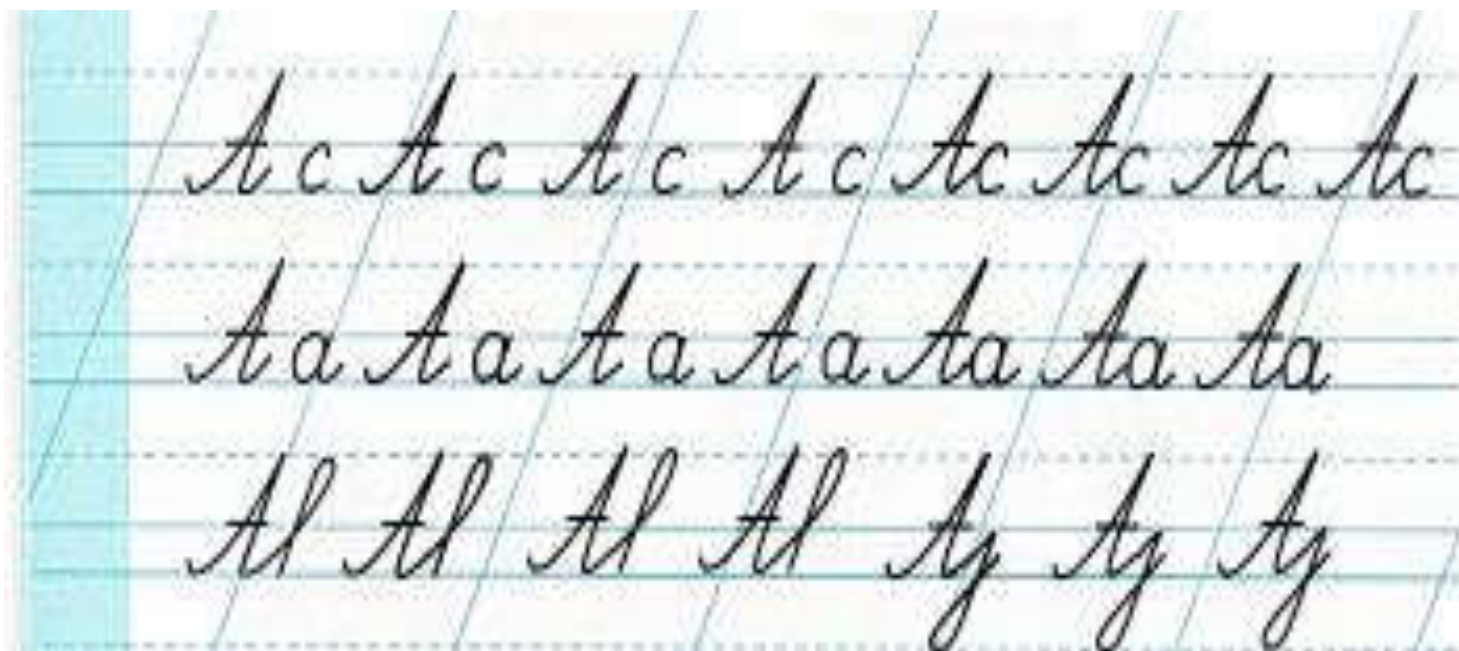 A c A c A c A c Ac Ac Ac Ac
A a A a A a A a Aa Aa Aa
Al Al Al Al